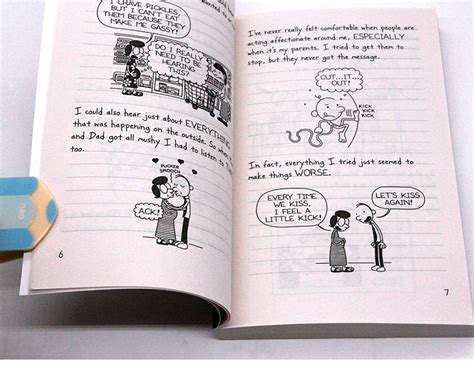 I HAVE PICKLES,
BUT I CAN'T EAT
THEM BECAUSE THEY
MAKE ME GASSY!
DO I REALLY
NEED TO BE
HEARING
THIS?
I could also hear just about EVERYTHING
that was happening on the outside. So when
and Dad got all mushy I had to listen to
too.
PUCKER
SMOOCH
ACK!
6
I've never really felt comfortable when people are
acting affectionate around me, ESPECIALLY
when it's my parents. I tried to get them to
stop, but they never got the message.
CUT...IT...
OUT!
KICK
KICK
KICK
In fact, everything I tried just seemed to
make things WORSE.
EVERY TIME
WE KISS,
I FEEL A
LITTLE KICK!
LET'S KISS
AGAIN!
7